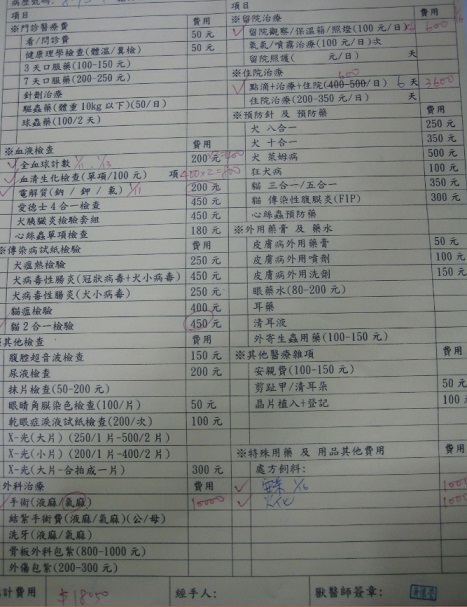 項目 費用
※門診醫療費
看/問診費 50元
健康理學檢查(體溫/糞檢) 50元
3天口服藥(100-150元)
7天口服藥(200-250元)
針劑治療
驅蟲藥(體重10kg以下)(50/日)
球蟲藥(100/2天)
※血液檢查 費用
全血球計數 200元
血清生化檢查(單項/100元) 項
電解質(鈉/鉀/氯) 1/1 200元
愛德士4合一檢查 450元
犬胰臟炎檢驗套組 450元
心絲蟲單項檢查 180元
※傳染病試紙檢驗 費用
犬瘟熱檢驗 250元
犬病毒性腸炎(冠狀病毒+犬小病毒) 450元
犬病毒性腸炎(犬小病毒) 250元
貓瘟檢驗 400元
貓2合一檢驗 450元
其他檢查 費用
腹腔超音波檢查 150元
尿液檢查 200元
抹片檢查(50-200元)
眼睛角膜染色檢查(100/片) 50元
乾眼症淚液試紙檢查(200/次) 100元
X-光(大片)(250/1片-500/2片)
X-光(小片)(200/1片-400/2片)
X-光(大片-合拍成一片) 300元
外科治療 費用
手術(液麻/氣麻) 10000
結紮手術費(液麻/氣麻)(公/母)
洗牙(液麻/氣麻)
骨板外科包紮(800-1000元)
外傷包紮(200-300元)
計費用 $18050 經手人: 獸醫師簽章:
項目 費用
※留院治療
留院觀察/保溫箱/照燈(100元/日) 600
氧氣/噴霧治療(100元/日)次
留院照護( 元/日) 天
※住院治療 600
點滴+治療+住院(400-500/日) 6天 3600
住院治療(200-350元/日) 天
※預防針 及 預防藥 費用
犬 八合一 250元
犬 十合一 350元
犬 萊姆病 500元
狂犬病 100元
貓 三合一/五合一 350元
貓 傳染性腹膜炎(FIP) 300元
心絲蟲預防藥
※外用藥膏 及 藥水 費用
皮膚病外用藥膏 50元
皮膚病外用噴劑 100元
皮膚病外用洗劑 150元
眼藥水(80-200元)
耳藥
清耳液
外寄生蟲用藥(100-150元)
※其他醫療雜項 費用
安親費(100-150元)
剪趾甲/清耳朵 50元
晶片植入+登記 100元
※特殊用藥 及 用品其他費用 費用
處方飼料:
1000
1000